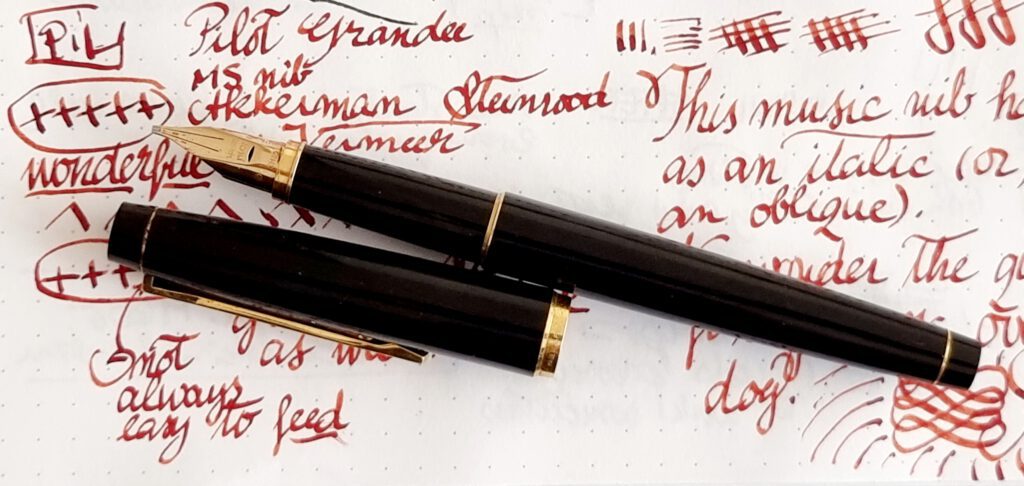 Pil
Pilot Grandee
MS nib
+++++ Akkerman Steenrood
Vermeer
wonderful
+++
as
not
always
easy to feed
This music nib ha
as an italic (or,
an oblique).
wonder the qu
ov
dog?